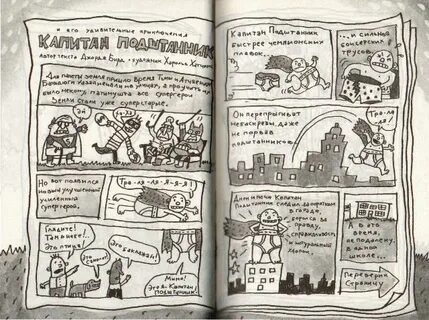 и его удивительные приключения
КАПИТАН ПОДШТАННИК
Автор текста Джордж Бирд художник Харольд Хатчинс
Для планеты Земля пришло время Тьмы и Отчаяния.
Бандюги хозяйничали на улицах, а проучить их
было некому потому што все супергерои
Земли стали уже суперстарые.
Эй
Ха-ха
Но вот появился
новый улучшенный
усиленный
супергерой,
Тра-ля-ля-я-я-я!
Глядите!
Там в небе!..
Это птичка!
Это самолет!
Это баклажан!
Мимо!
Это ж Капитан
Подштанник!
Капитан Подштанник
быстрее чемпионских
плавок,
...и сильнее
боксерских
трусов.
Он перепрыгивает
небоскребы, даже
не порвав
подштанников!
Тра-ля-ля
Днем и ночью Капитан
Подштанник следил за порядком
в городе,
борясь за
правду,
справедливость
и натуральный
хлопок.
А в это
время,
неподалеку
в одной
школе...
Переверни
Страницу